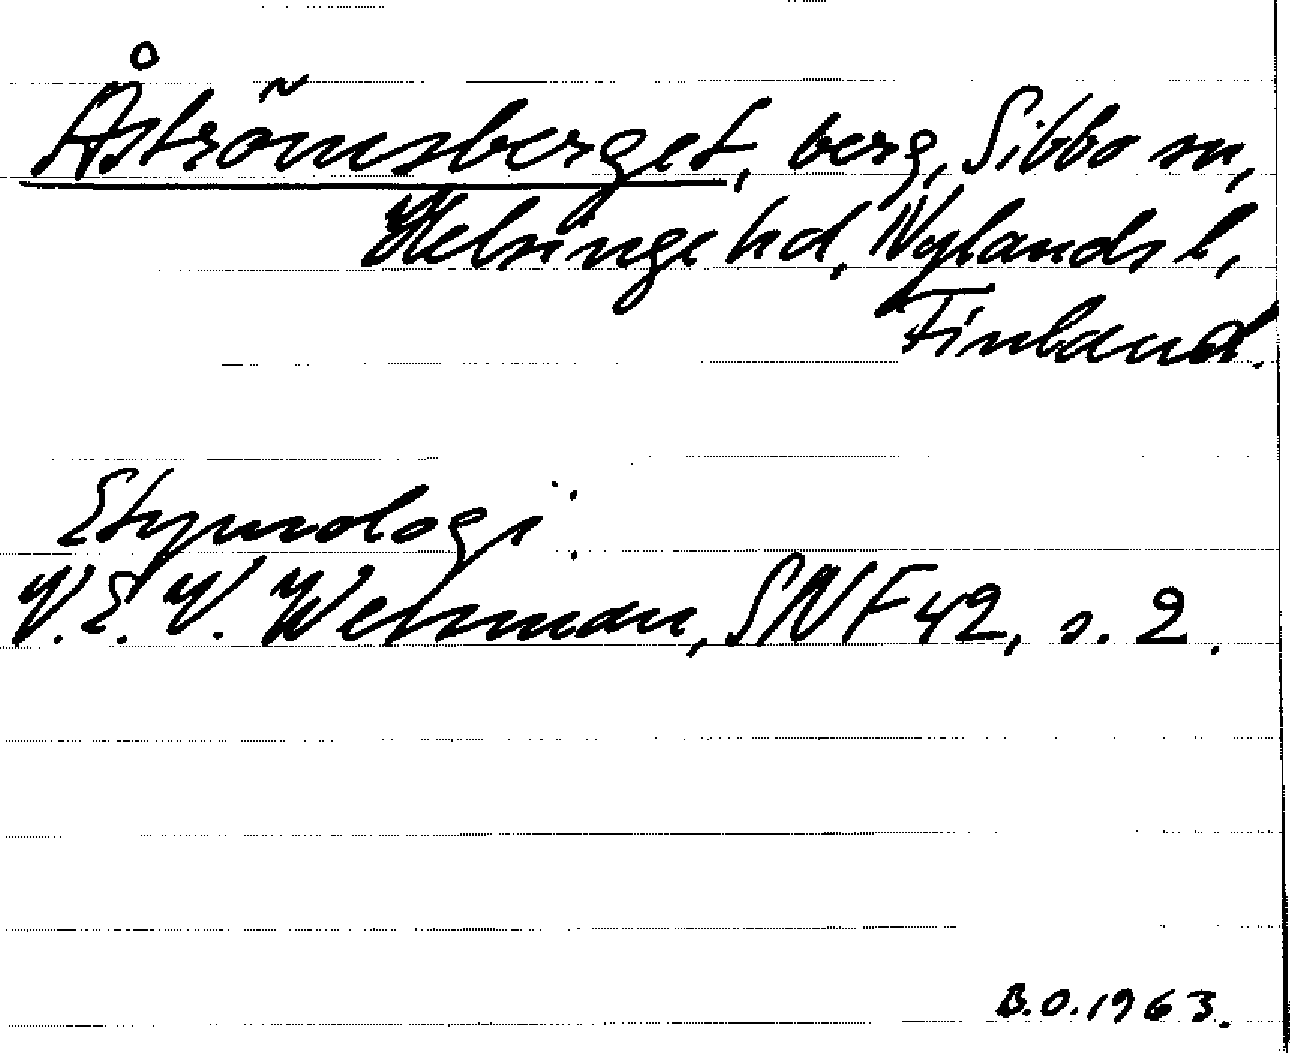 Åströmsberget, berg, Sibbo sn,
Helsinge hd, Nylands l,
Finland.
Etymologi:
V. E. V. Wessman, SNF 42, s. 2.
B.O. 1963.